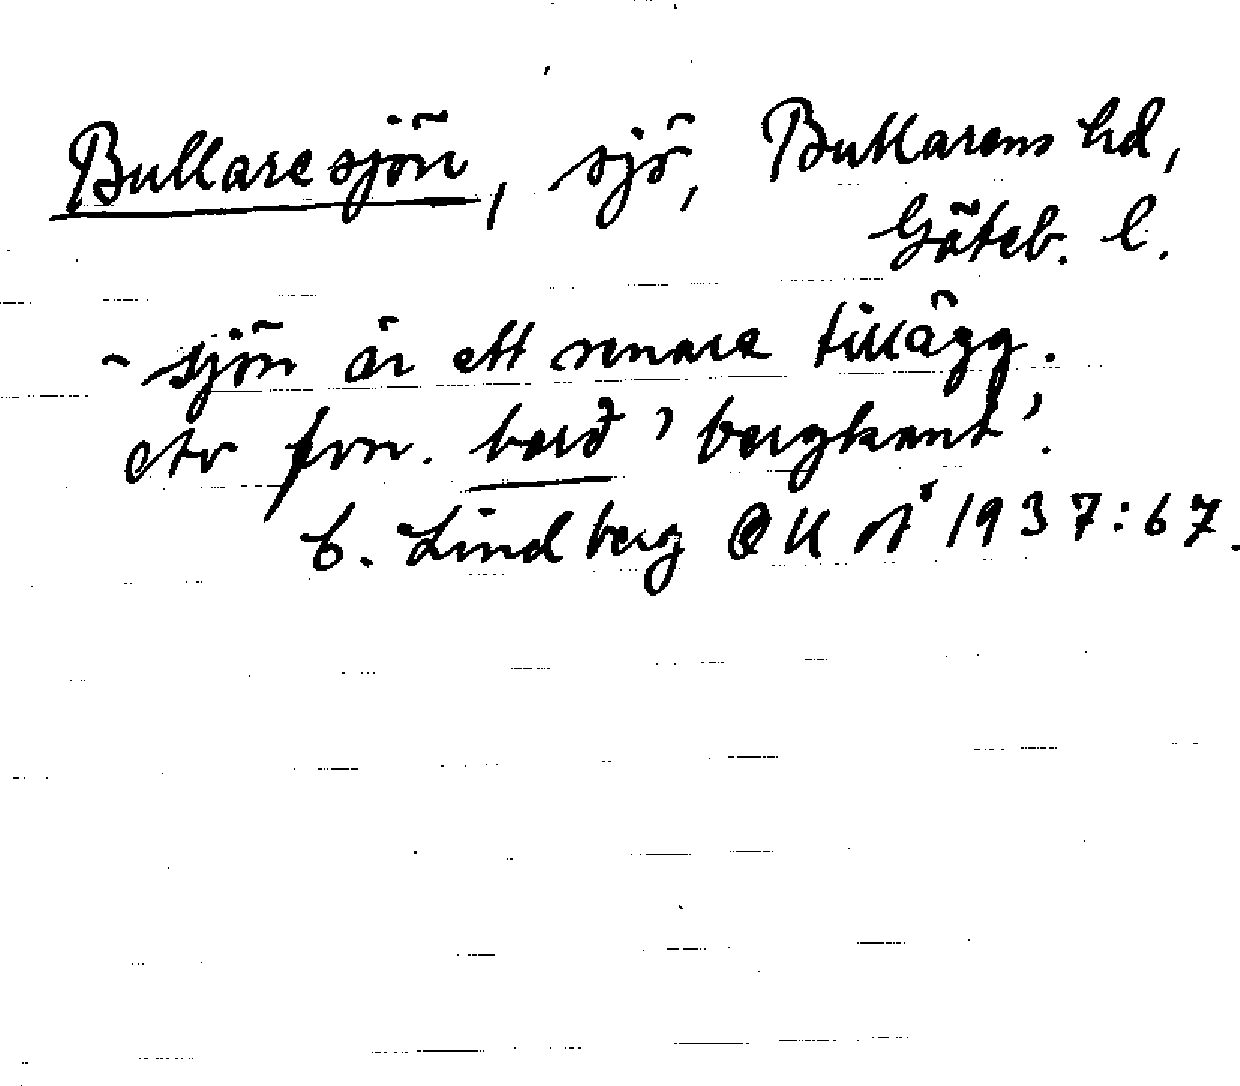 Bullaresjön, sjö, Bullarens hd,
Göteb. l.
-sjön är ett senare tillägg.
fvn. barð 'bergkant'.
C. Lindberg 1937:67.